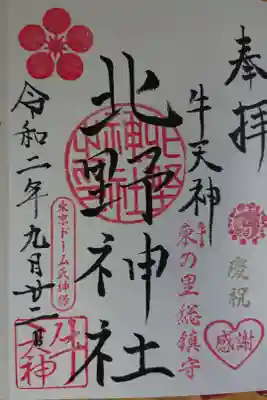 奉拝
慶祝
感謝
牛天神
東の里総鎮守
北野神社
北野神社
東京ドーム氏神様
牛天神
令和二年九月廿二日